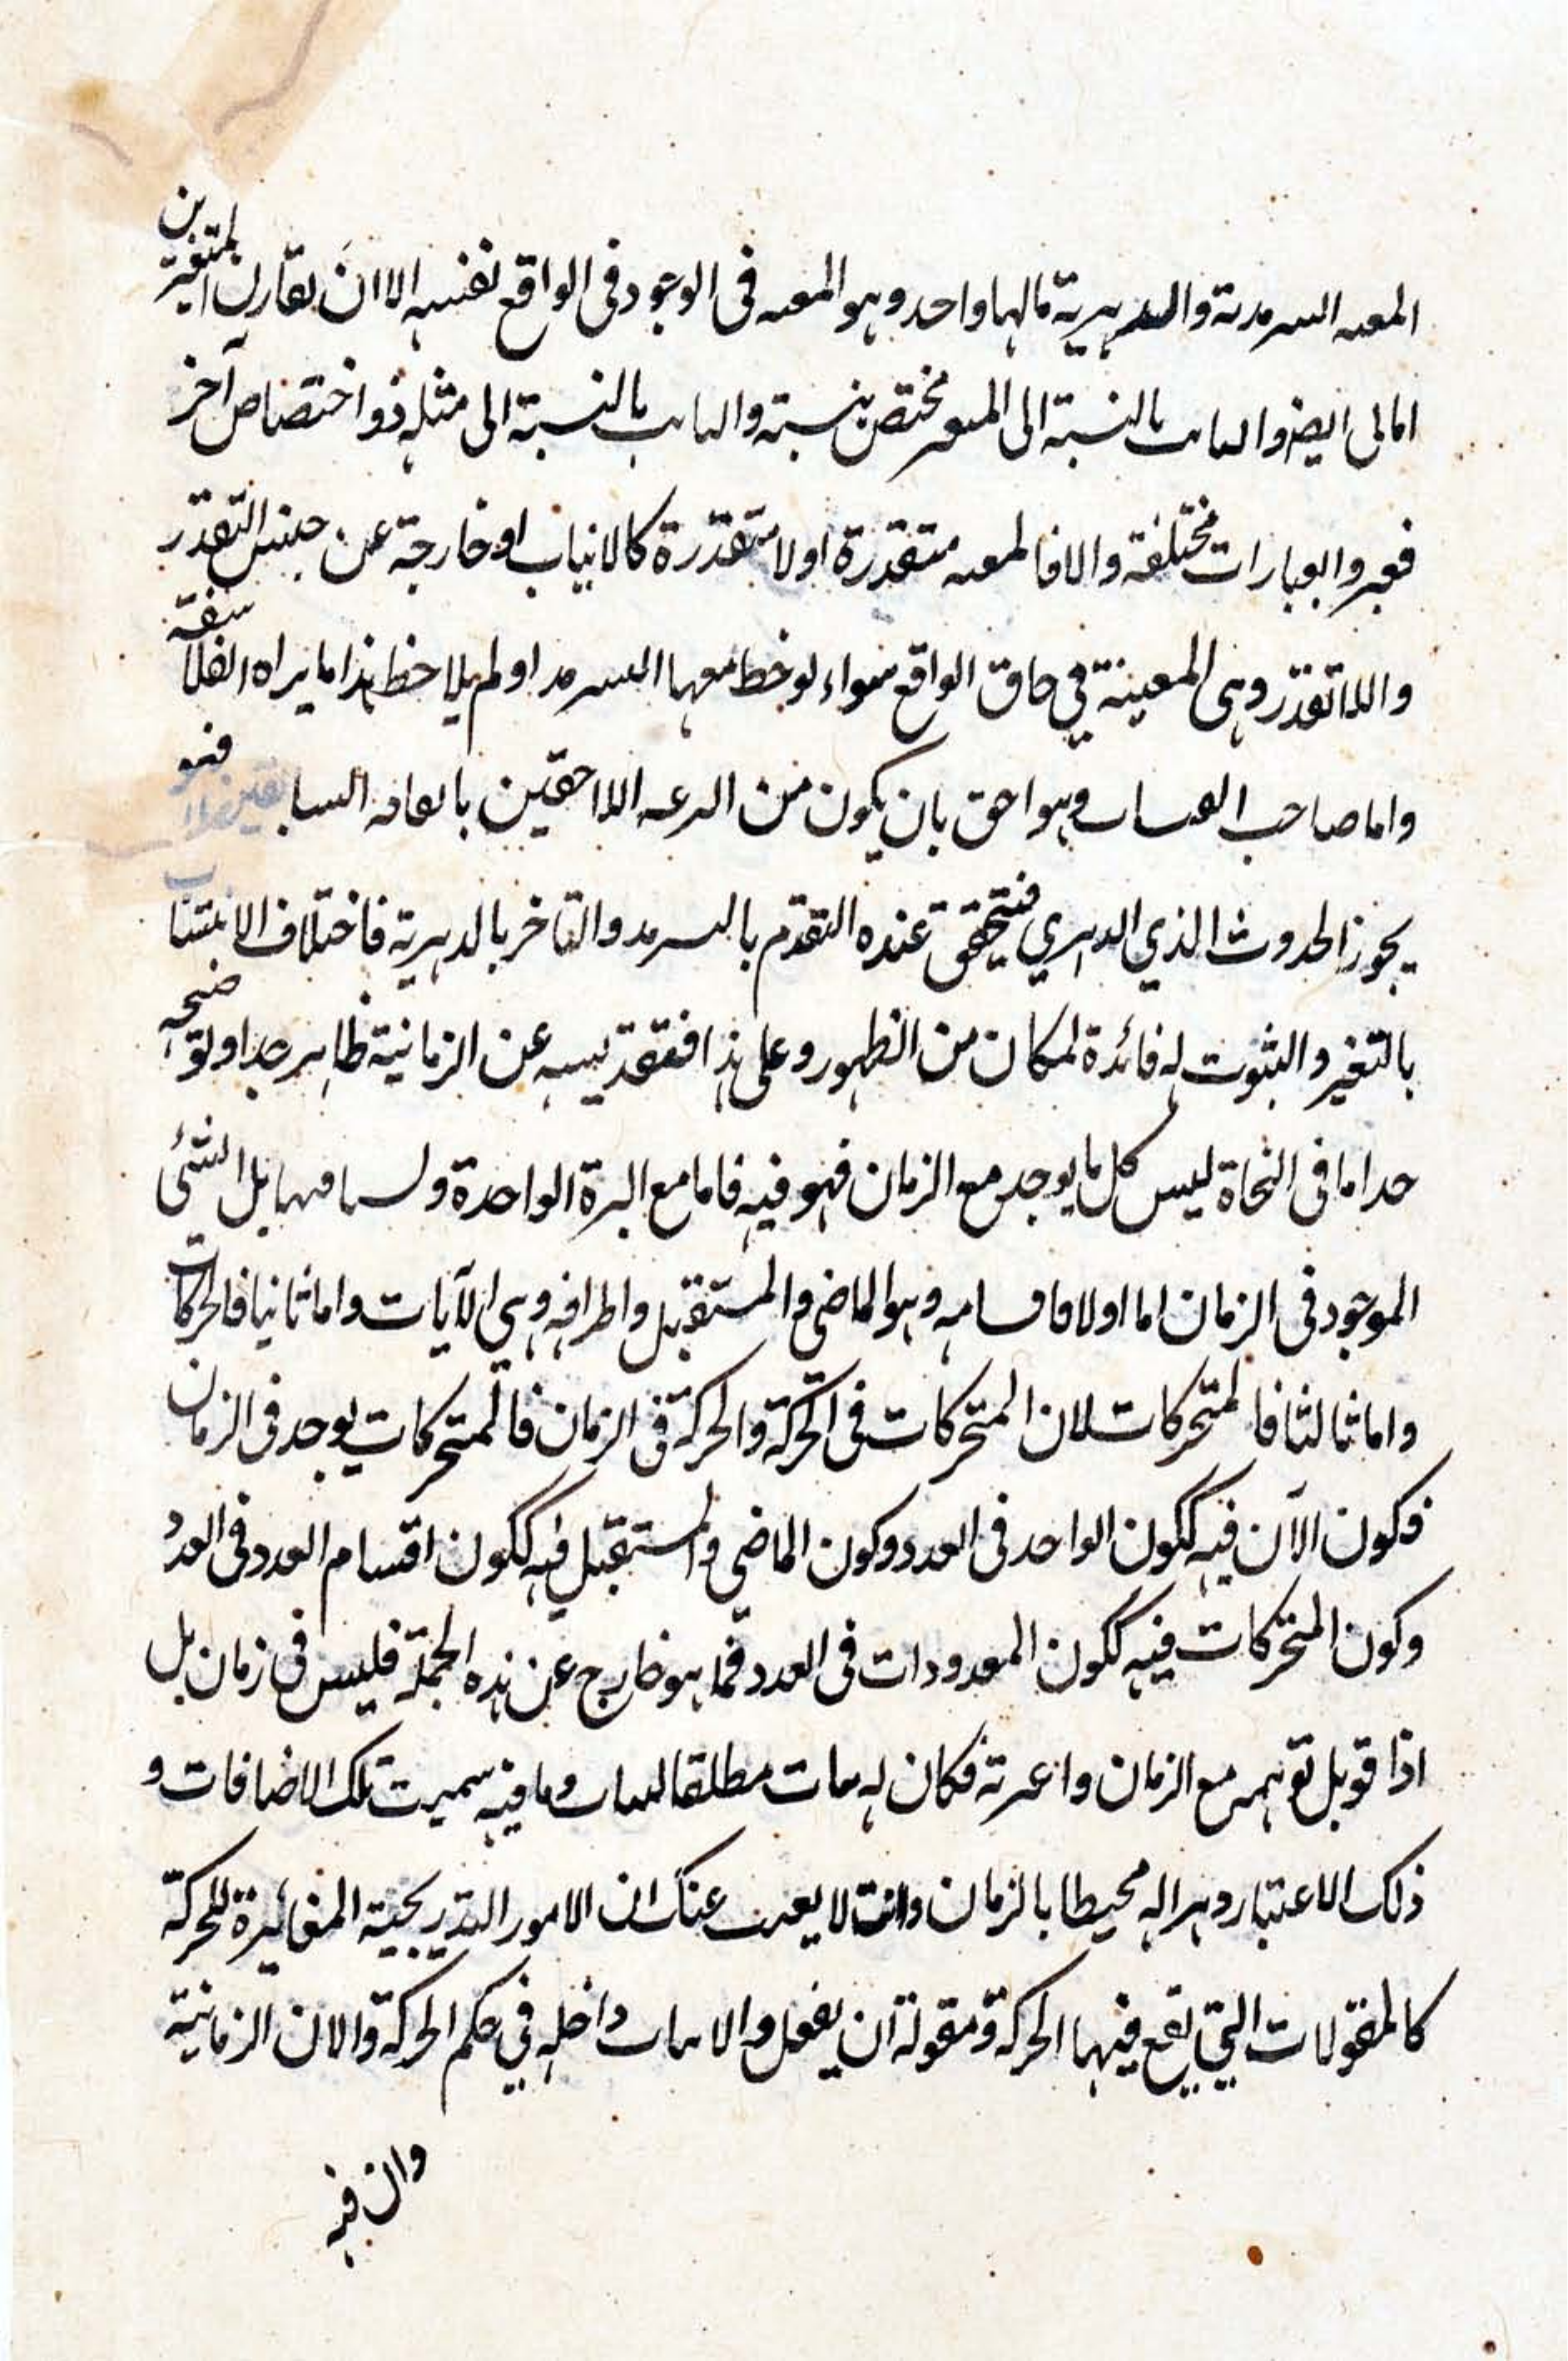 المعية السرمدية والدهرية مالهما واحد وهو المعية في الوجود في الواقع نفسه الا ان تقارن المتغيرين
امالى ايضا والثابت بالنسبة الى المتغير مختص بنسبة والثابت بالنسبة الى مثله ذو اختصاص آخر
فعبروا بعبارات مختلفة والا فالمعية متقدرة او لا متقدرة كالانيات او خارجة عن جنس التقدر
واللاتقدر وهى المعينة في حاق الواقع سواء لوخط معها السرمد او لم يلاحظ هذا ما يراه الفلاسفة
واما صاحب القبسات وهو احق بان يكون من اللاحقين السابقين فهو
يجوز الحدوث الذي الدهري فيتحقق عنده التقدم بالسرمد والتاخر بالدهرية فاختلاف الانتساب
بالتغير والثبوت له فائدة لمكان من الظهور وعلى هذا فتقديسه عن الزمانية ظاهر جدا ولتوضحه
جدا ما في النجاة ليس كل ما يوجد مع الزمان فهو فيه فاما مع البرة الواحدة ولسنا فيها بل الشئى
الموجود في الزمان اما اولا فاقسامه وهو الماضى والمستقبل واطرافه وهي الآيات واما ثانيا فالحركات
واما ثالثا فالمتحركات لان المتحركات في الحركة والحركة في الزمان فالمتحركات يوجد في الزمان
فكون الآن فيه ككون الواحد في العدد وكون الماضي والمستقبل فيه ككون اقسام العدد في العدد
وكون المتحركات فيه ككون المعدودات في العدد فما هو خارج عن هذه الجملة فليس في زمان بل
اذا قوبل توهم مع الزمان واعبرته فكان له ثبات مطلقا لثبات وما فيه سميت تلك الاضافات و
ذلك الاعتبار دهرا له محيطا بالزمان وانت لا يغيب عنك ان الامور التدريجية المغائرة للحركة
كالمقولات التي يقع فيها الحركة ومقولة ان يفعل والانيات داخلة في حكم الحركة والان الزمانية
وان فيه